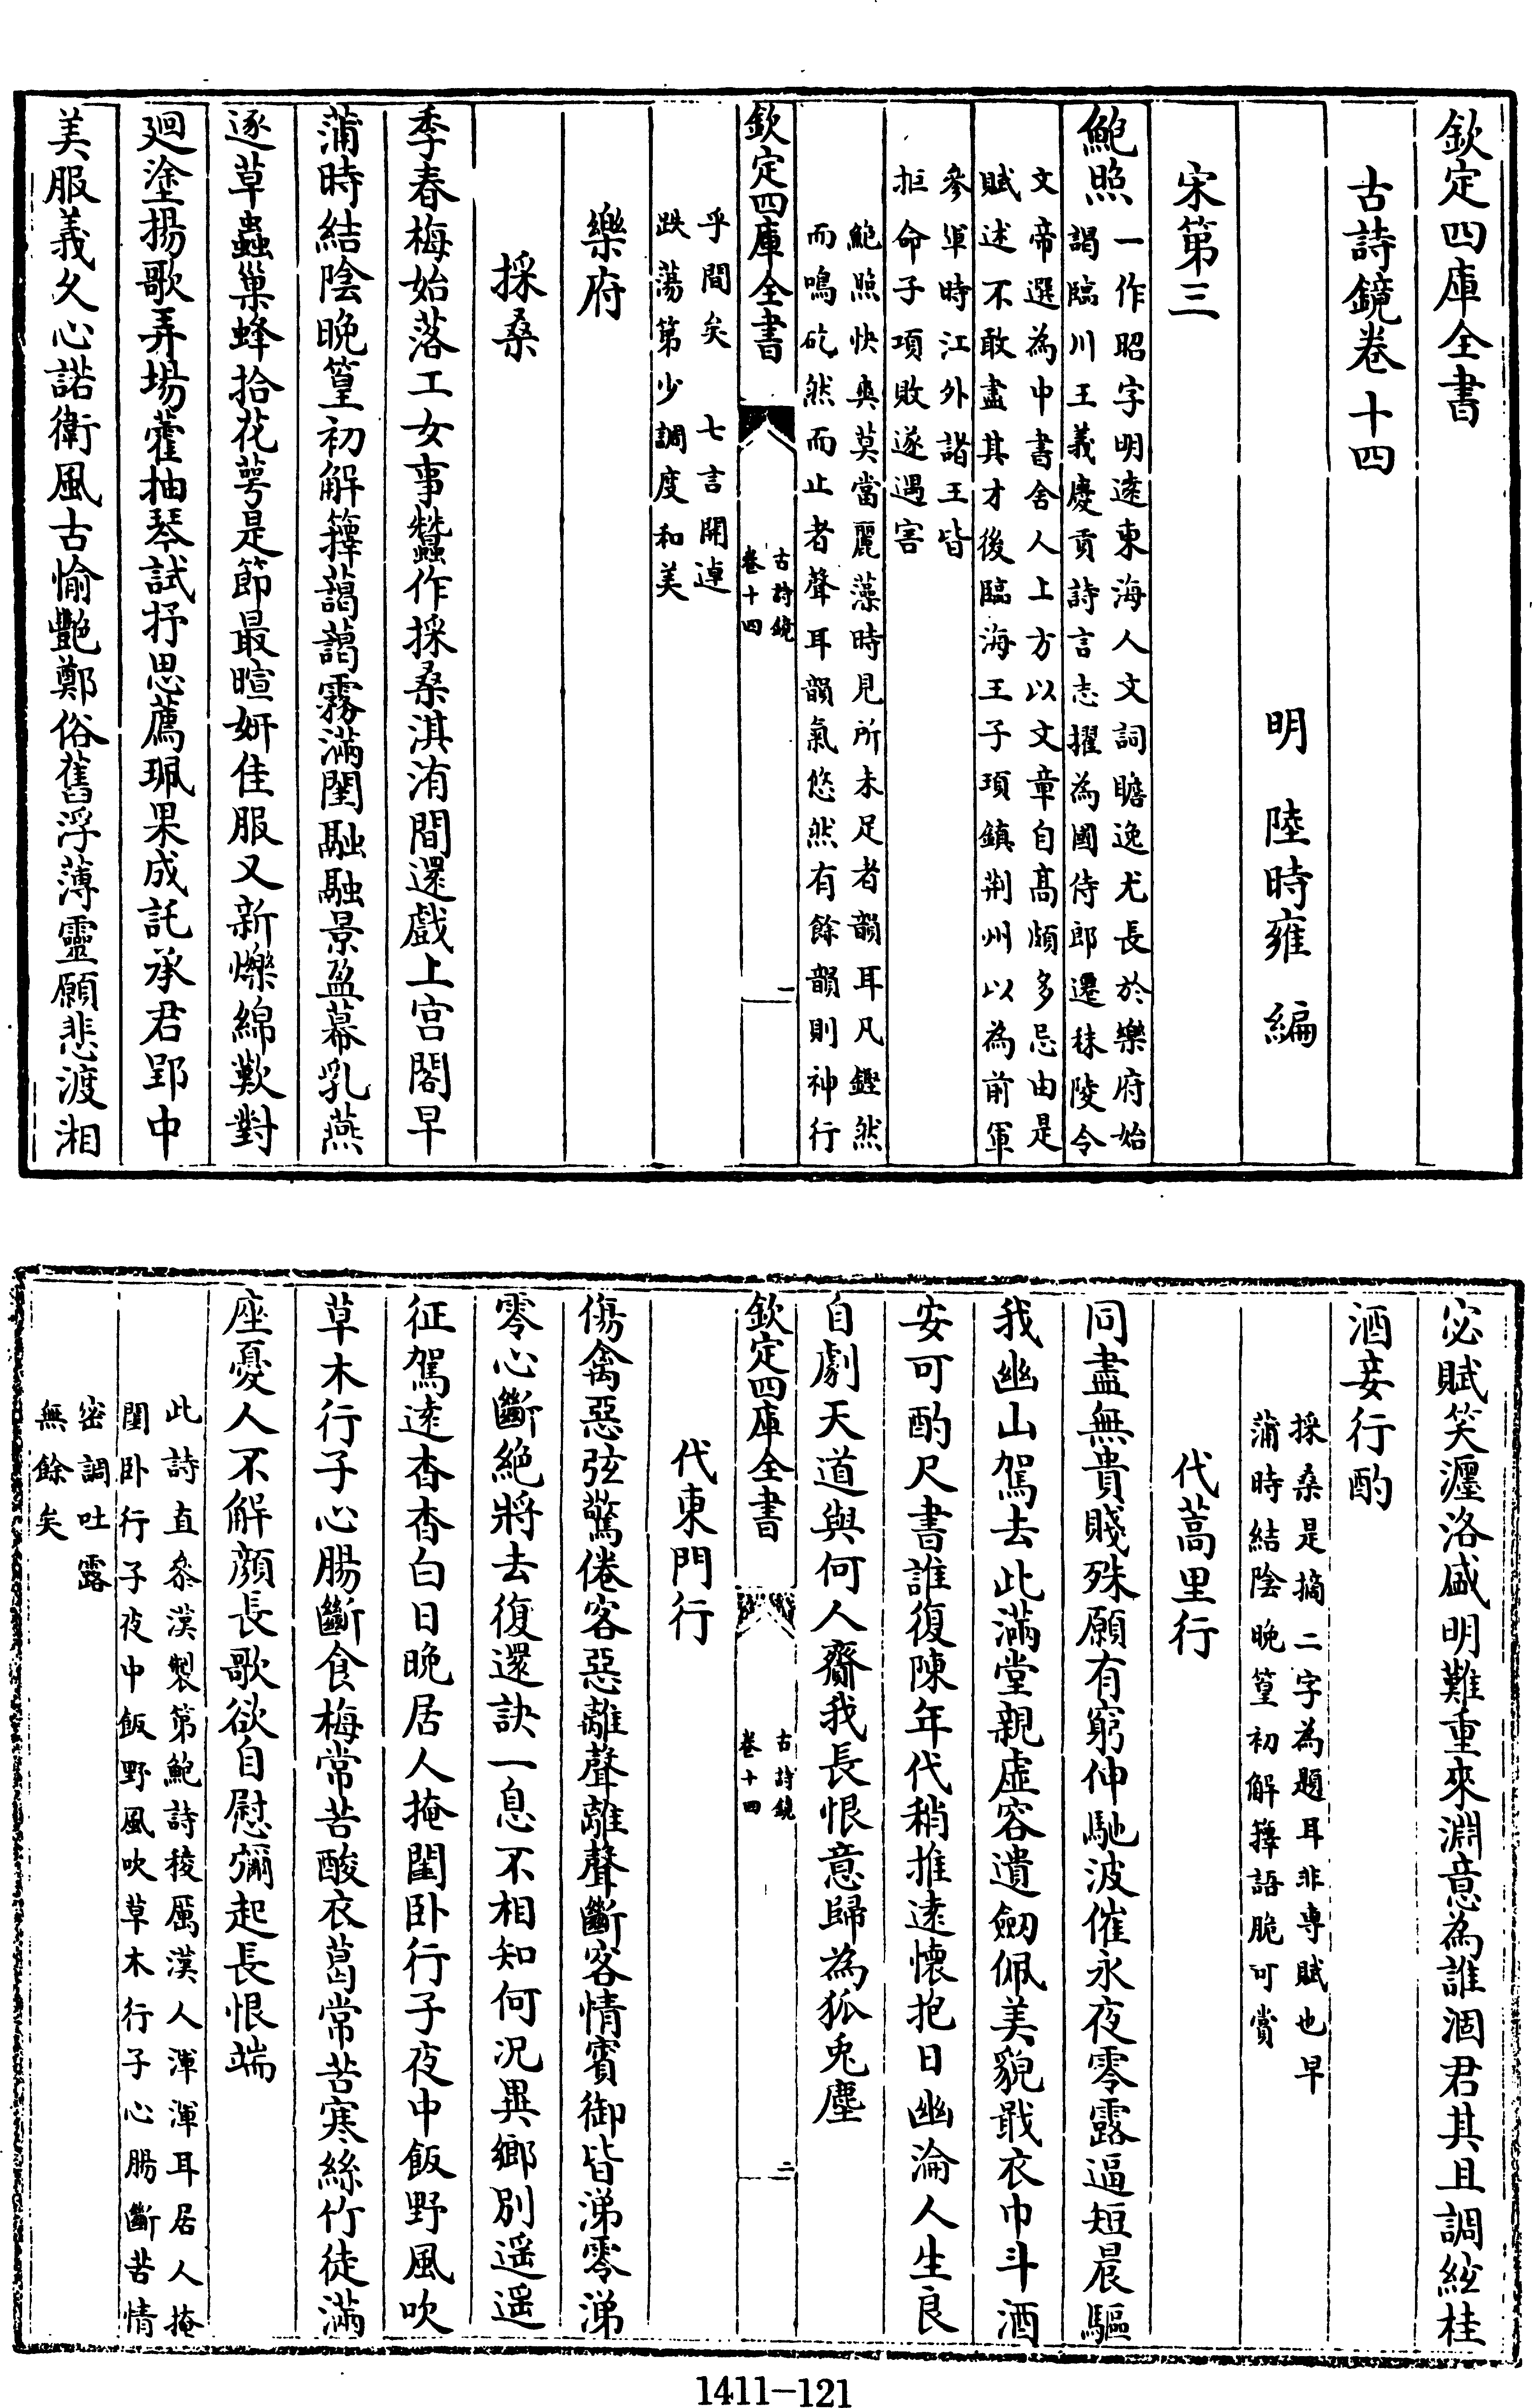 欽定四庫全書
古詩鏡卷十四
明 陸時雍 編
宋第三
鮑照
一作昭字明遠東海人文詞贍逸尤長於樂府始
謁臨川王義慶貢詩言志擢為國侍郎遷秣陵令
文帝選為中書舍人上方以文章自高頗多忌由是
賦述不敢盡其才後臨海王子頊鎮荆州以為前軍
參軍時江外諸王皆
拒命子項敗遂遇害
鮑照快爽莫當麗藻時見所未足者韻耳凡鏗然
而鳴矻然而止者聲耳韻氣悠然有餘韻則神行
欽定四庫全書
古詩鏡
卷十四
一
乎間矣 七言開逴
跌蕩第少調度和美
樂府
採桑
季春梅始落工女事蠶作採桑淇洧間還戲上宫閣早
蒲時結陰晚篁初解籜藹藹霧滿閨融融景盈幕乳燕
逐草蟲巢蜂拾花萼是節最暄妍佳服又新爍綿歎對
廻塗揚歌弄場藿抽琴試抒思薦珮果成託承君郢中
美服義久心諾衛風古愉艷鄭俗舊浮薄靈願悲渡湘
宓賦笑瀍洛盛明難重來淵意為誰涸君其且調絃桂
酒妾行酌
採桑是摘二字為題耳非專賦也早
蒲時結陰晚篁初解籜語脆可賞
代蒿里行
同盡無貴賤殊願有窮伸馳波催永夜零露逼短晨驅
我幽山駕去此滿堂親虚容遺劒佩美貌戢衣巾斗酒
安可酌尺書誰復陳年代稍推遠懷抱日幽淪人生良
自劇天道與何人齎我長恨意歸為狐兎塵
欽定四庫全書
古詩鏡
卷十四
二
代東門行
傷禽惡弦驚倦客惡離聲離聲斷客情賓御皆涕零涕
零心斷絶將去復還訣一息不相知何況異鄉别遥遥
征駕遠杳杳白日晚居人掩閨卧行子夜中飯野風吹
草木行子心腸斷食梅常苦酸衣葛常苦寒絲竹徒滿
座憂人不解顔長歌欲自慰彌起長恨端
此詩直叅漢製第鮑詩稜厲漢人渾渾耳居人掩
閨卧行子夜中飯野風吹草木行子心腸斷苦情
密調吐露
無餘矣
1411—121